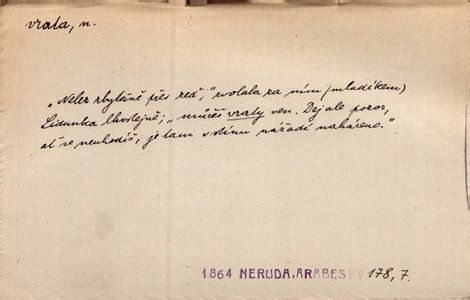 vrata, n.
„Nelez zbytečně přes zeď,“ zvolala za ním (mladíkem)
Lidunka lhostejně; „můžeš vraty ven. Dej ale pozor,
ať se neuhodíš, je tam v stínu nářadí naházeno.“
1864 NERUDA, ARABES 178, 7.